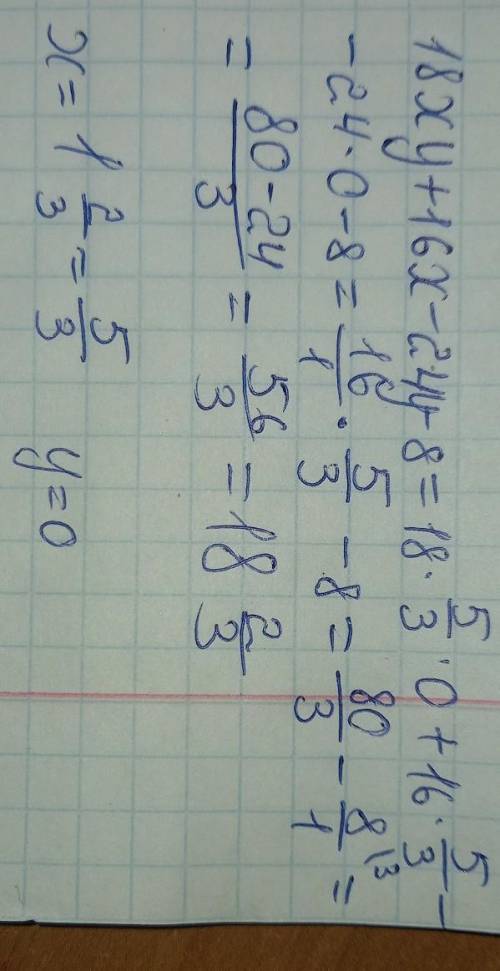 18xy+16x-24y-8=18·5/3·0+16·5/3-
-24·0-8=16/1·5/3-8=80/3-8\3/1=
=80-24/3=56/3=18 2/3
x=1 2/3=5/3 y=0